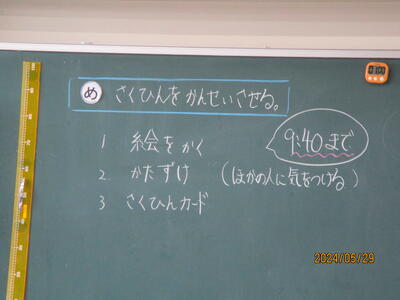 め さくひんを かんせいさせる。
1 絵をかく
9:40まで
2 かたずけ (ほかの人に気をつける)
3 さくひんカード
2024/05/29